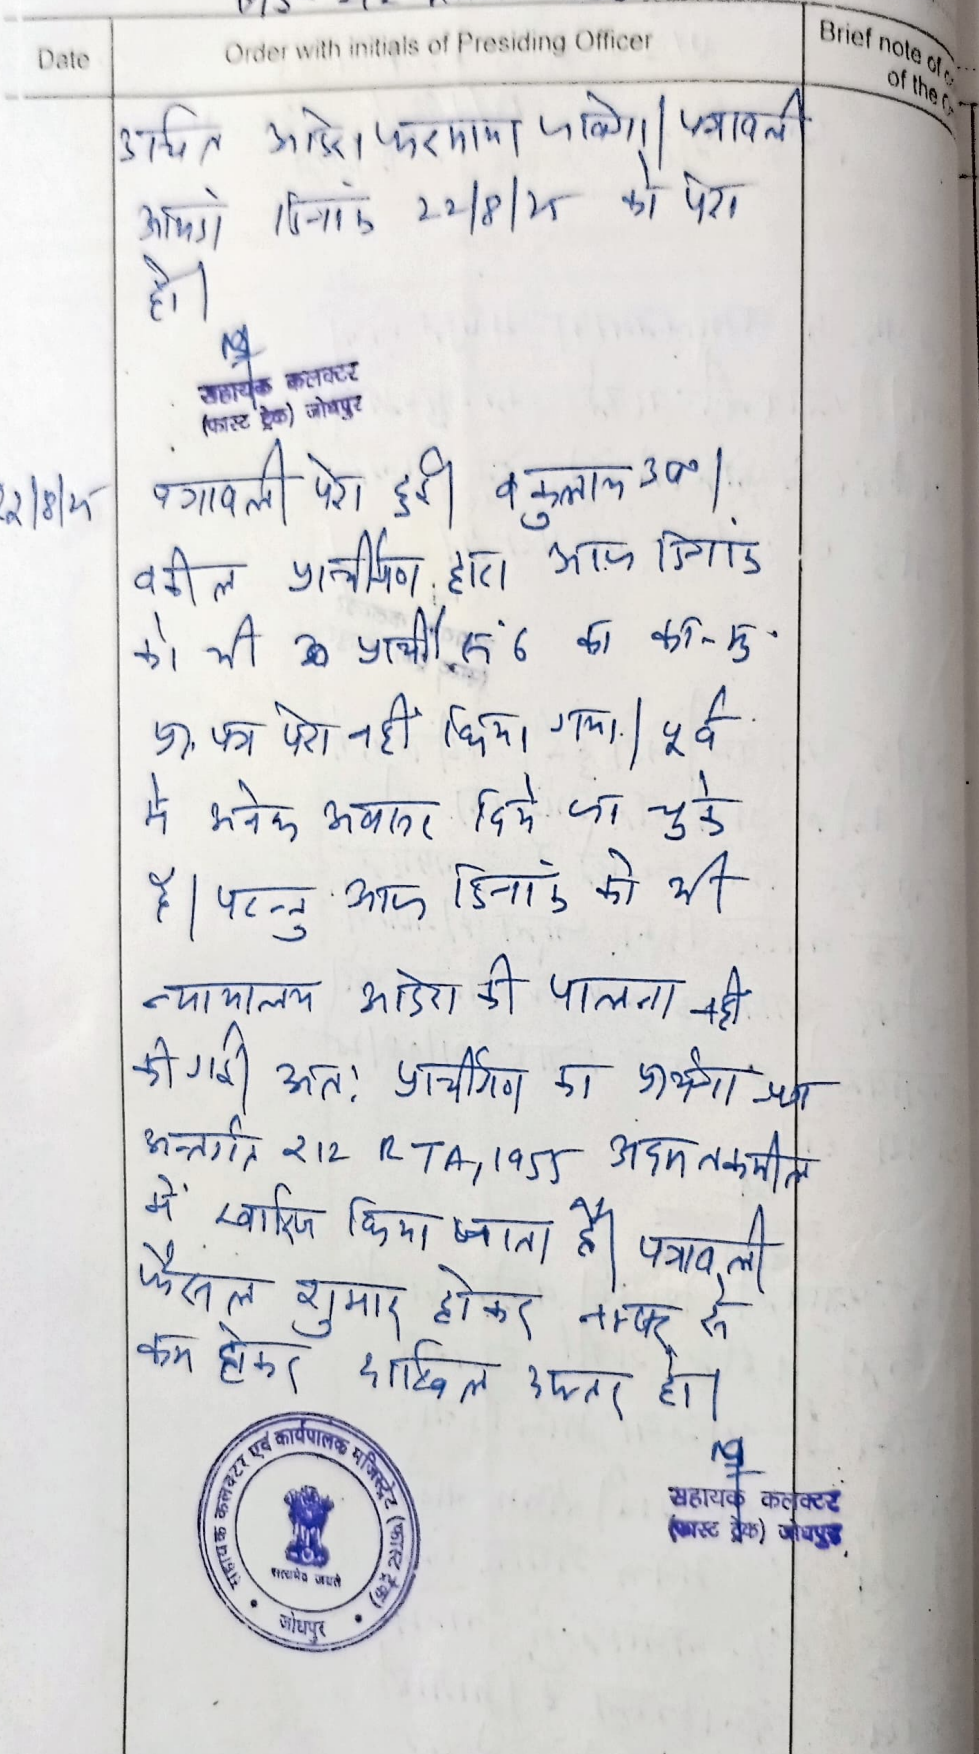 Date
Order with initials of Presiding Officer
Brief note of
of the
उचित आदेश फरमाया जावेगा। पत्रावली
आयंदा दिनांक 22/8/25 को पेश
हो।
सहायक कलक्टर
(फास्ट ट्रेक) जोधपुर
22/8/25
पत्रावली पेश हुई। वकुलाय उप०।
वकील प्रार्थीगण द्वारा आज दिनांक
को भी प्रार्थी सं 6 का का-मु.
प्रा. पत्र पेश नहीं किया गया। पूर्व
में अनेक अवसर दिये जा चुके
है। परन्तु आज दिनांक को भी
न्यायालय आदेश की पालना नही
की गई। अतः प्रार्थीगण का प्रार्थना पत्र
अन्तर्गत 212 RTA, 1955 अदम तकमील
में खारिज किया जाता है। पत्रावली
फैसल शुमार होकर नम्बर से
कम होकर दाखिल दफ्तर हो।
सहायक कलक्टर
(फास्ट ट्रेक) जोधपुर
सहायक कलक्टर एवं कार्यपालक मजिस्ट्रेट (फास्ट ट्रेक)
सत्यमेव जयते
जोधपुर